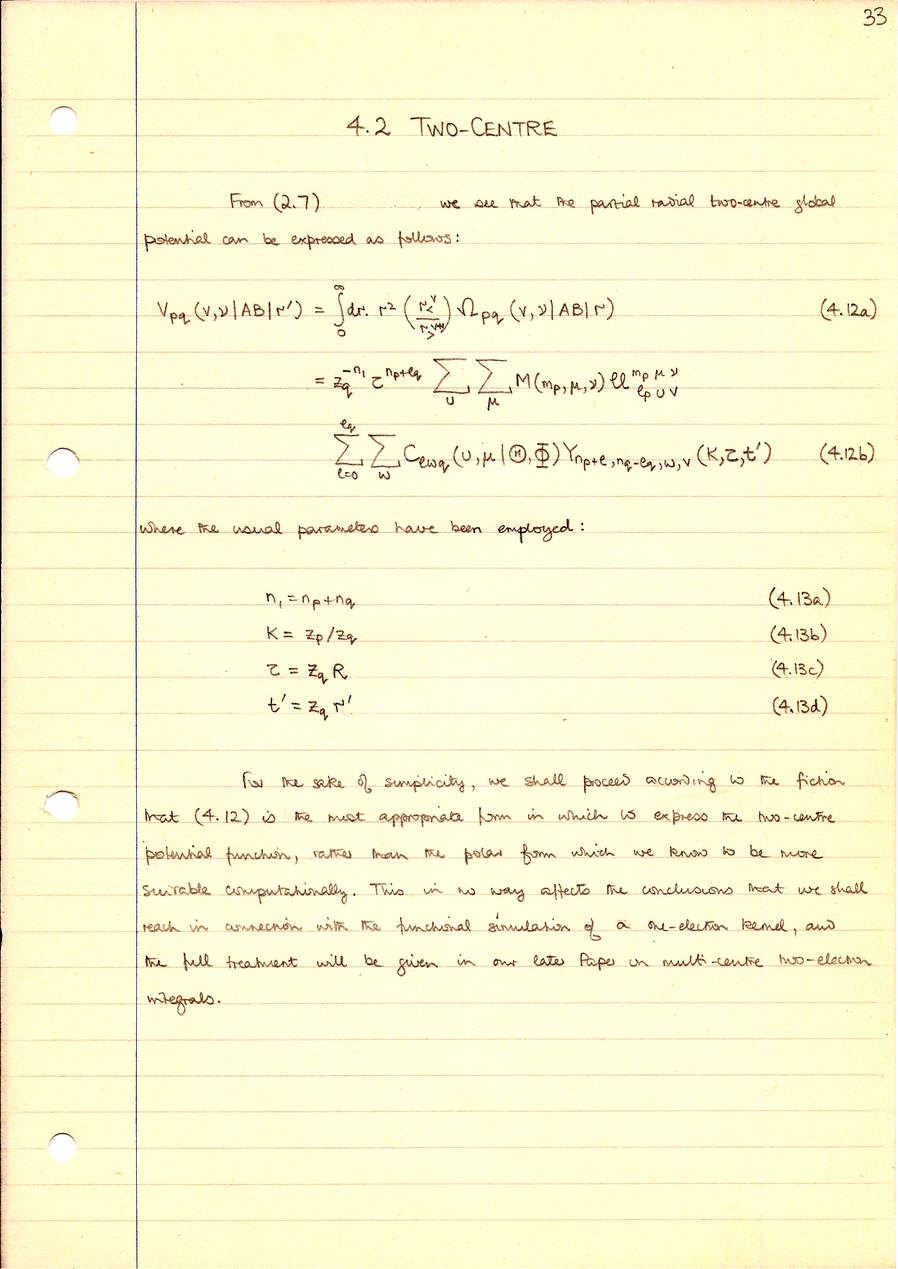 33
4.2 TWO-CENTRE
From (2.7) we see that the partial radial two-centre global
potential can be expressed as follows:
V_pq (v,ν|AB|r') = ∫_0^∞ dr. r² (r_<^v / r_>^{v+1}) Ω_pq (v,ν|AB|r) (4.12a)
= z_q^{-n₁} τ^{n_p+e_q} Σ_u Σ_μ M(m_p,μ,ν) U^{m_p μ ν}_{ℓ_p u v}
Σ_{e=0}^{e_q} Σ_w C_{ewq}(u,μ|Θ,Φ) Y_{n_p+e,n_q-e_q,w,v} (K,τ,t') (4.12b)
where the usual parameters have been employed:
n₁ = n_p+n_q (4.13a)
K = z_p/z_q (4.13b)
τ = z_q R (4.13c)
t' = z_q r' (4.13d)
For the sake of simplicity, we shall proceed according to the fiction
that (4.12) is the most appropriate form in which to express the two-centre
potential function, rather than the polar form which we know to be more
suitable computationally. This in no way affects the conclusions that we shall
reach in connection with the functional simulation of a one-electron kernel, and
the full treatment will be given in our later Paper on multi-centre two-electron
integrals.